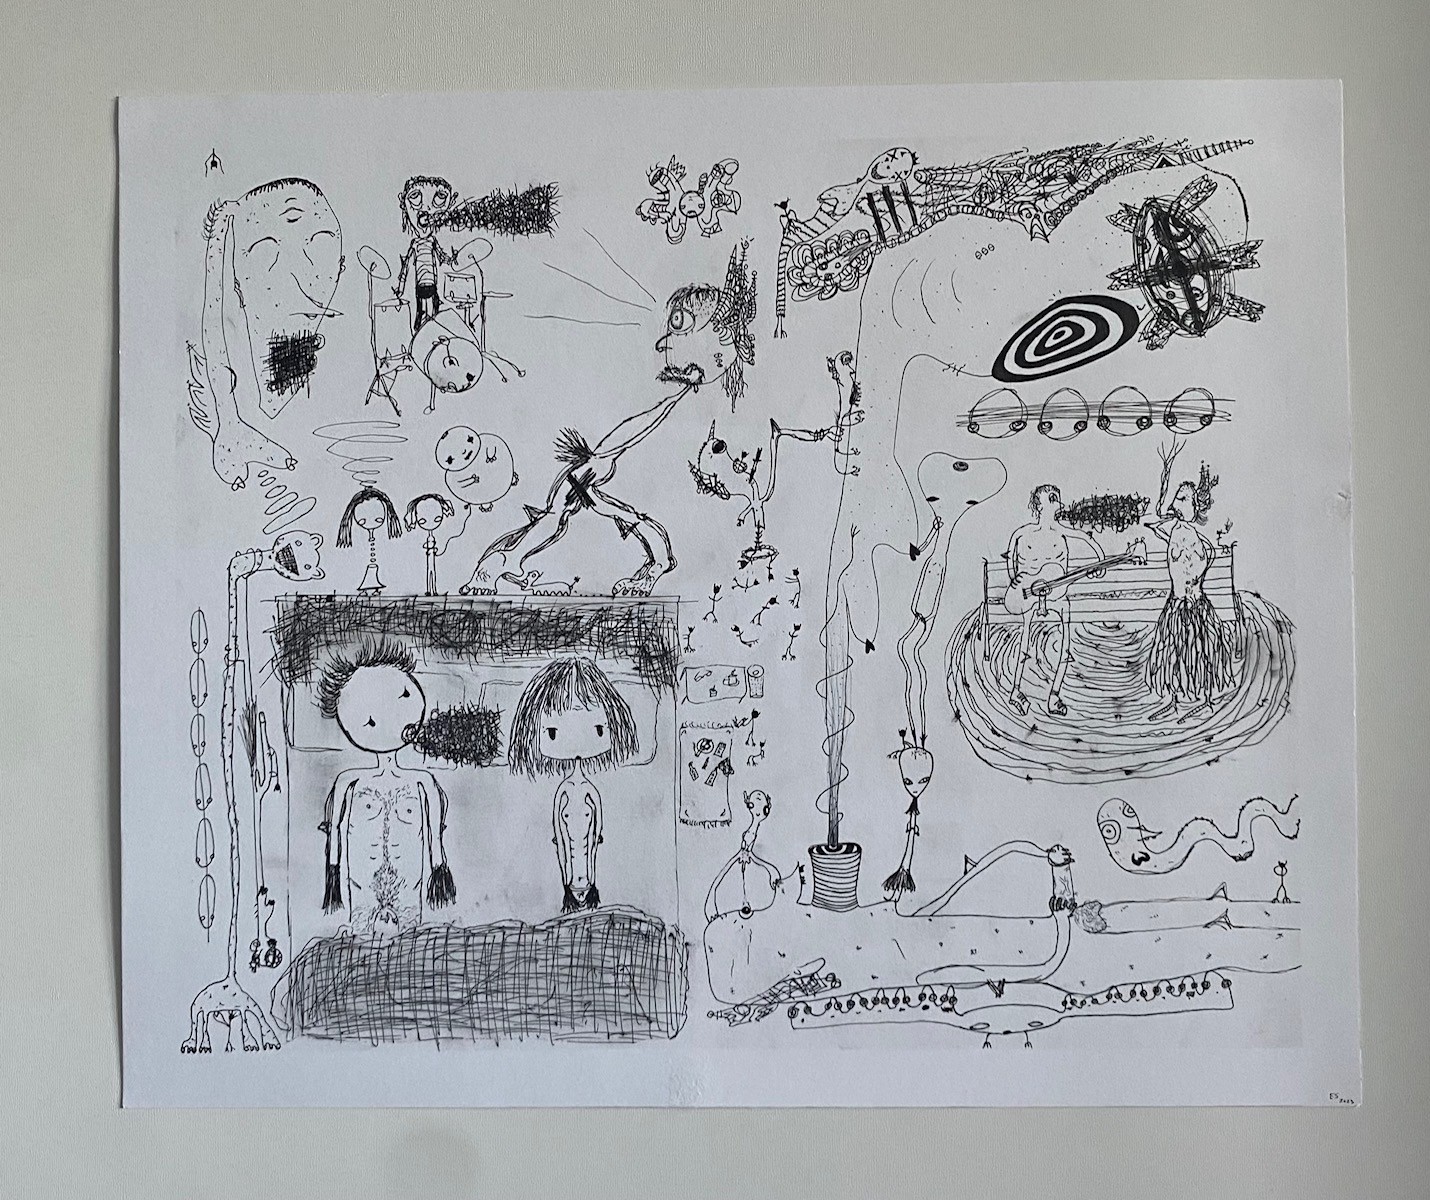 ES
2023